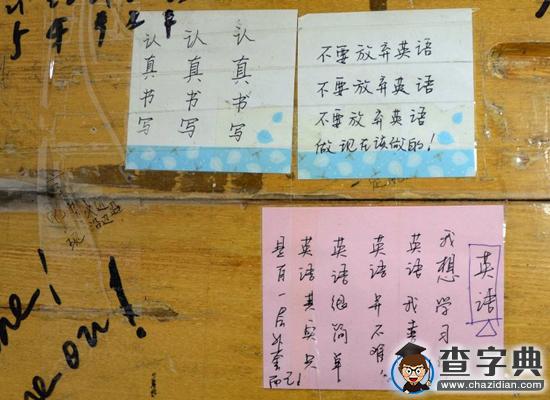 认真书写
认真书写
认真书写
不要放弃英语
不要放弃英语
不要放弃英语
做现在该做的!
英语
我想学习
英语 我喜
英语并不难!
英语很简单
英语其实只
是有一层外 而已!
ne!
e on!
查字典
www.chazidian.com